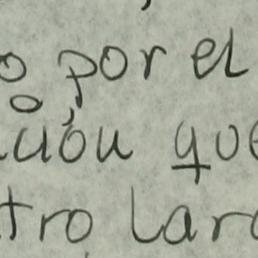 o por el
ción que
tro lar